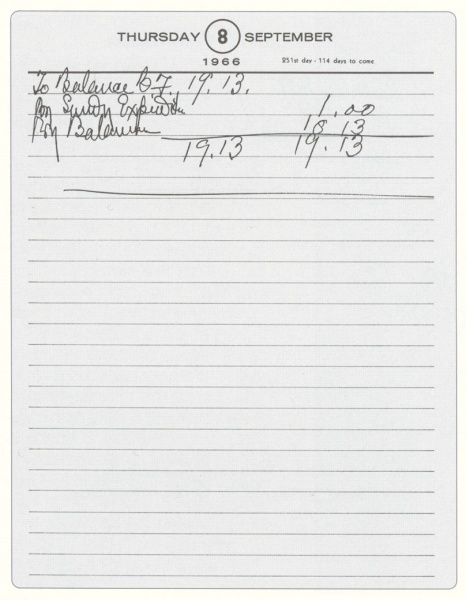 THURSDAY 8 SEPTEMBER
1966 251st day - 114 days to come
To Balance B.F. 19.13.
By Sundry Expenditure 1.00
By Balance 18.13
19.13 19.13